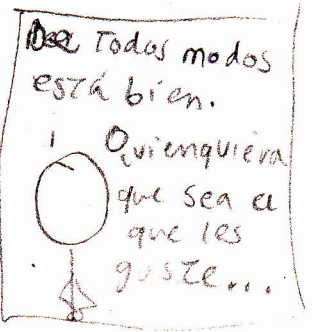 De Todos modos
está bien.
Quienquiera
que sea el
que les
guste...